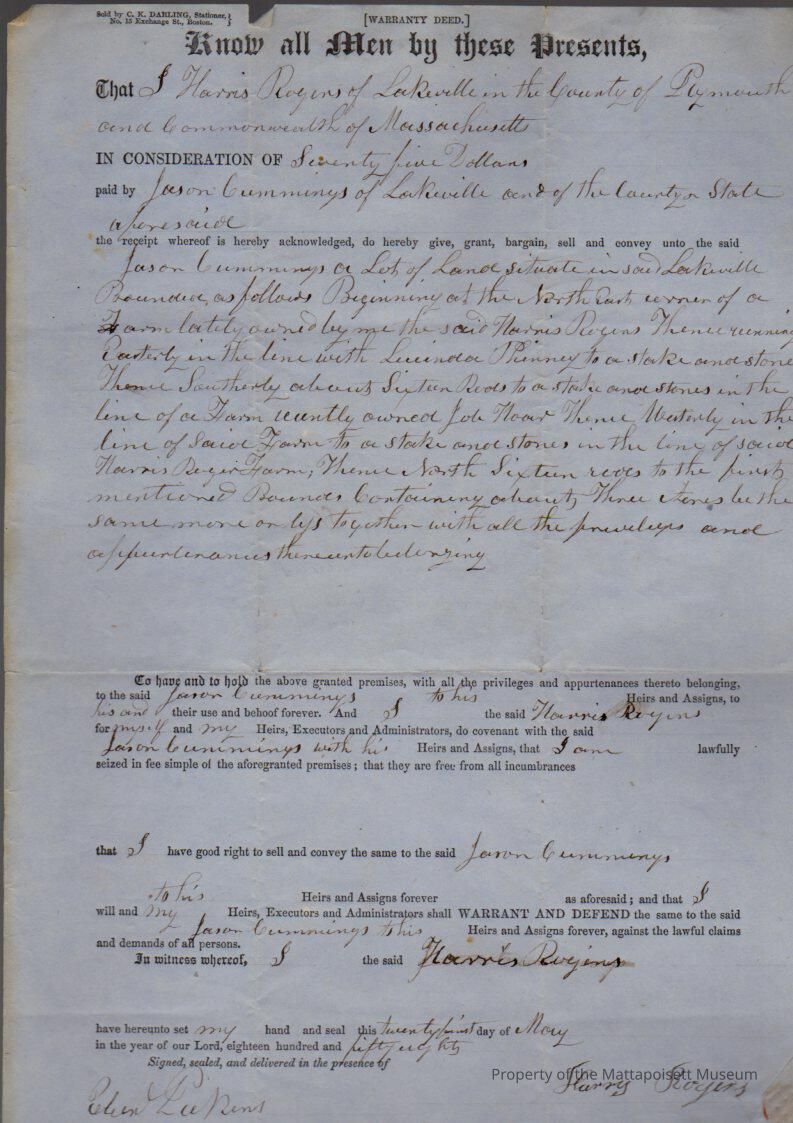 Sold by C. K. DARLING, Stationer,
No. 15 Exchange St., Boston.
[WARRANTY DEED.]
Know all Men by these Presents,
That I Harris Rogers of Lakeville in the County of Plymouth
and Commonwealth of Massachusetts
IN CONSIDERATION OF Seventy five Dollars
paid by Jason Cummings of Lakeville and of the County & State
aforesaid
the receipt whereof is hereby acknowledged, do hereby give, grant, bargain, sell and convey unto the said
Jason Cummings a Lot of Land situate in said Lakeville
Bounded, as follows Beginning at the North East corner of a
Farm lately owned by me the said Harris Rogers Thence running
Easterly in the line with Lucinda Phinney to a stake and stone
Thence Southerly about Sixteen Rods to a stake and stones in the
line of a Farm recently owned Job Hoar Thence Westerly in the
line of said Farm to a stake and stones in the line of said
Harris Roger Farm, Thence North Sixteen rods to the first
mentioned Bounds Containing about Three Acres be the
same more or less together with all the privileges and
appurtenances thereunto belonging
To have and to hold the above granted premises, with all the privileges and appurtenances thereto belonging,
to the said Jason Cummings to his Heirs and Assigns, to
his and their use and behoof forever. And I the said Harris Rogers
for myself and my Heirs, Executors and Administrators, do covenant with the said
Jason Cummings with his Heirs and Assigns, that I am lawfully
seized in fee simple of the aforegranted premises; that they are free from all incumbrances
that I have good right to sell and convey the same to the said Jason Cummings
to his Heirs and Assigns forever as aforesaid; and that I
will and my Heirs, Executors and Administrators shall WARRANT AND DEFEND the same to the said
Jason Cummings to his Heirs and Assigns forever, against the lawful claims
and demands of all persons.
In witness whereof, I the said Harris Rogers
have hereunto set my hand and seal this twenty first day of May
in the year of our Lord, eighteen hundred and fifty eight
Signed, sealed, and delivered in the presence of
Property of the Mattapoisett Museum
Harris Rogers